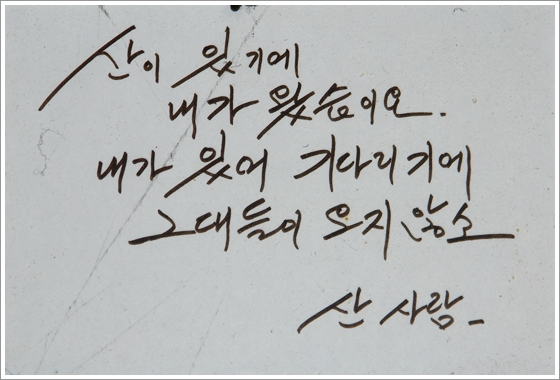 산이 있기에
내가 왔슴이오.
내가 있어 기다리기에
그대들이 오지 않소
산 사람-